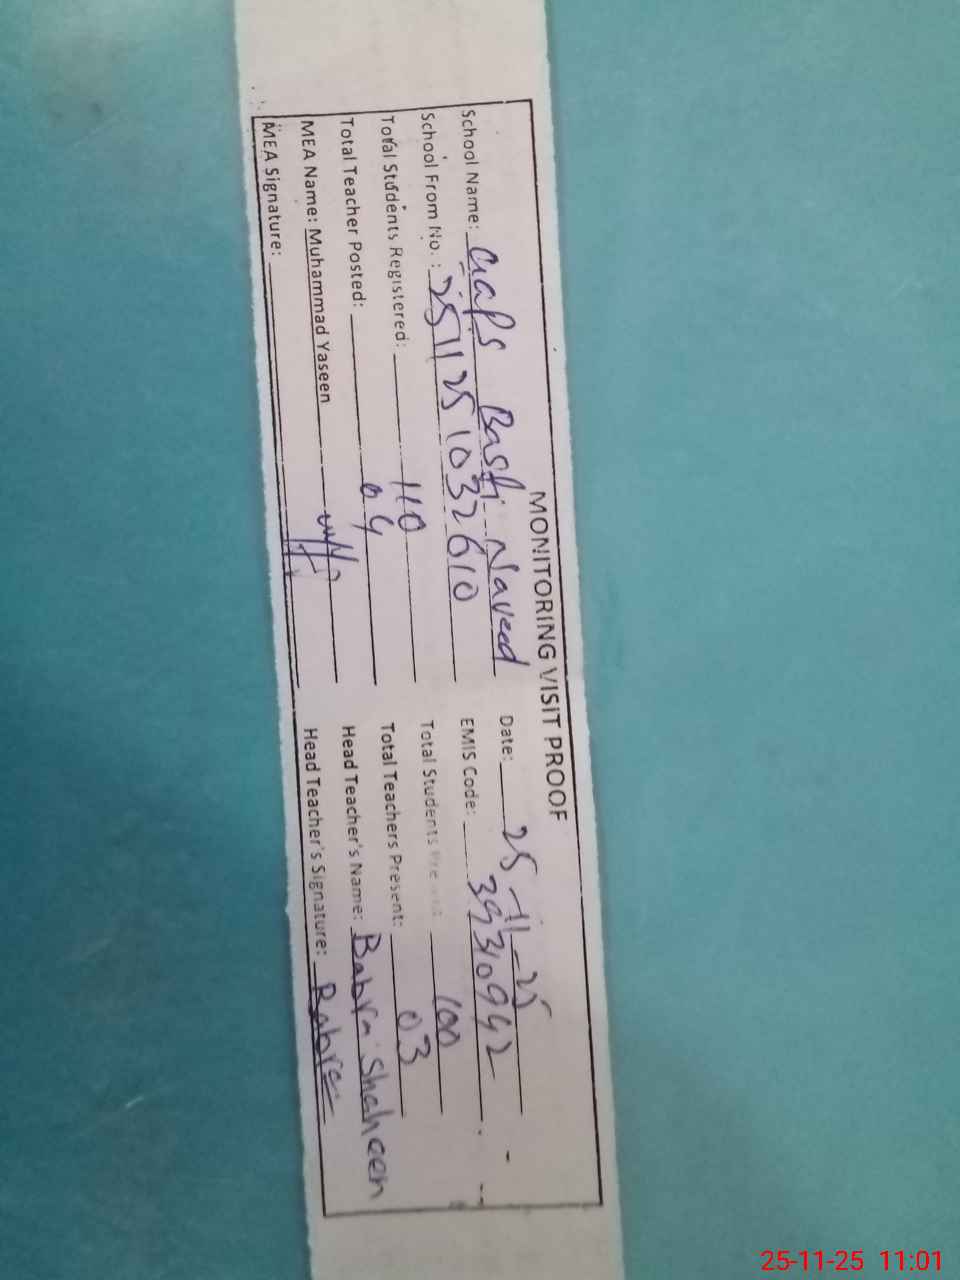 MONITORING VISIT PROOF
School Name: GGPS Basti Naveed Date: 25-11-25
School From No. : 251125 1032610 EMIS Code: 39310942
Total Students Registered: 110 Total Students Present: 100
Total Teacher Posted: 04 Total Teachers Present: 03
MEA Name: Muhammad Yaseen Head Teacher's Name: Babra Shaheen
MEA Signature: Head Teacher's Signature: Babra
25-11-25 11:01